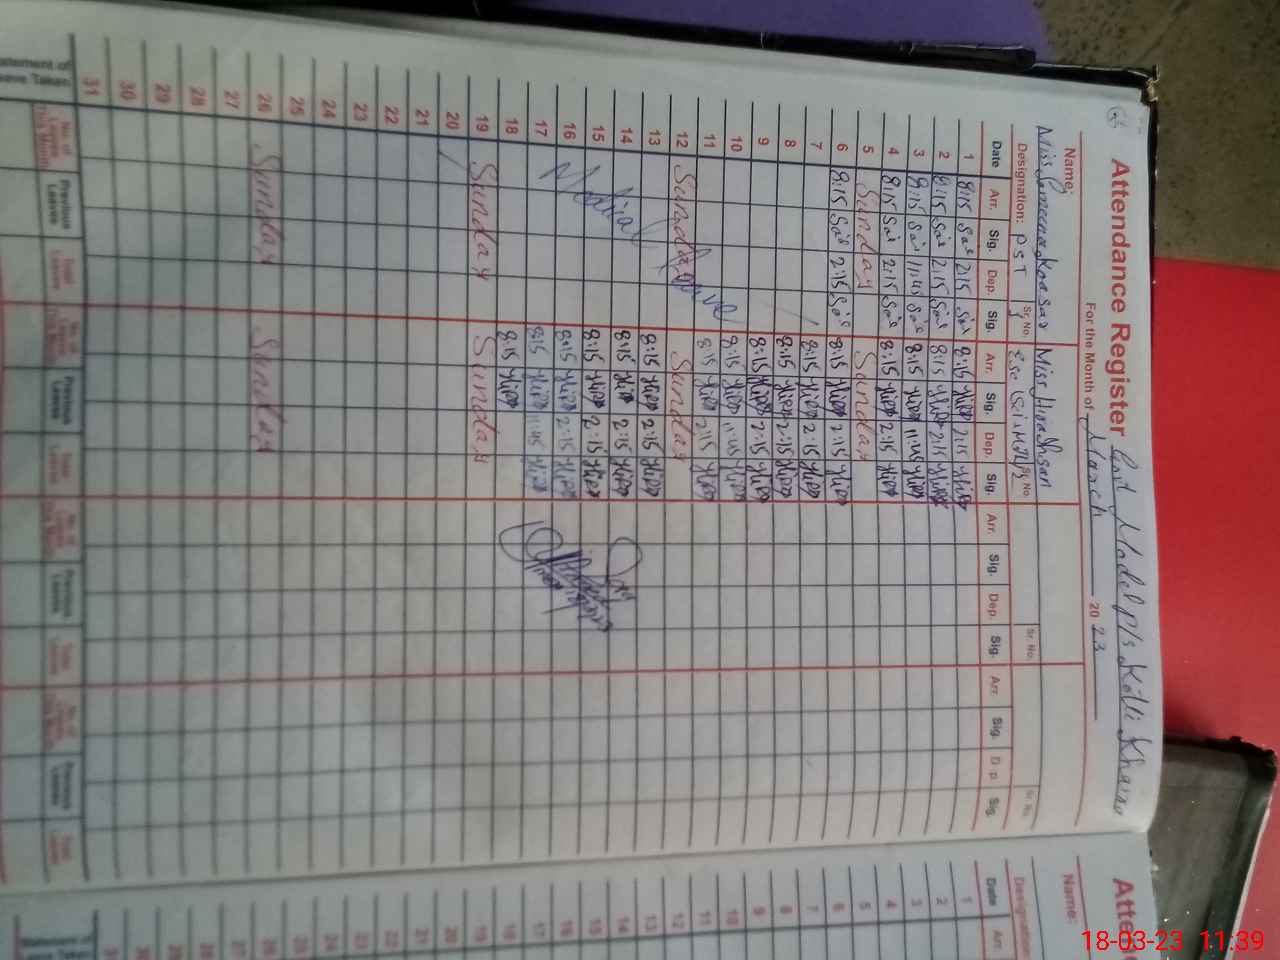 Attendance Register Govt Model P/s Killi
For the Month of March 2023
Name: Miss Kausar Miss Hira Ihsan
Designation: PST Sr. No. 1 ESE (Sci-Math) Sr. No. Sr. No. Sr. No.
Date Arr. Sig. Dep. Sig. Arr. Sig. Dep. Sig. Arr. Sig. Dep. Sig. Arr. Sig. D p Sig.
1 8:15 Sa 2:15 Sa 8:15 Hira 2:15 Hira
2 8:15 Sa 2:15 Sa 8:15 Hira 2:15 Hira
3 8:15 Sa 11:45 Sa 8:15 Hira 11:45 Hira
4 8:15 Sa 2:15 Sa 8:15 Hira 2:15 Hira
5 Sunday Sunday
6 8:15 Sa 2:15 Sa 8:15 Hira 2:15 Hira
7 8:15 Hira 2:15 Hira
8 8:15 Hira 2:15 Hira
9 8:15 Hira 2:15 Hira
10 8:15 Hira 11:45 Hira
11 8:15 Hira 2:15 Hira
12 Sunday Sunday
Medical Leave
13 8:15 Hira 2:15 Hira
14 8:15 Hira 2:15 Hira
15 8:15 Hira 2:15 Hira
16 8:15 Hira 2:15 Hira
17 8:15 Hira 11:45 Hira
18 8:15 Hira
19 Sunday Sunday
20
21
22
23
24
25
26 Sunday Sunday
27
28
29
30
31
Statement of Leave Taken
No. of Leaves This Month Previous Leaves Total Leaves No. of Leaves This Month Previous Leaves Total Leaves No. of Leaves This Month Previous Leaves Total Leaves No. of Leaves This Month Previous Leaves Total Leaves
Atte
Name:
Designation
Date Arr.
1
2
3
4
5
6
7
8
9
10
11
12
13
14
15
16
17
18
19
20
21
22
23
24
25
26
27
28
29
30
31
Statement of Leave Taken
18-03-23 11:39